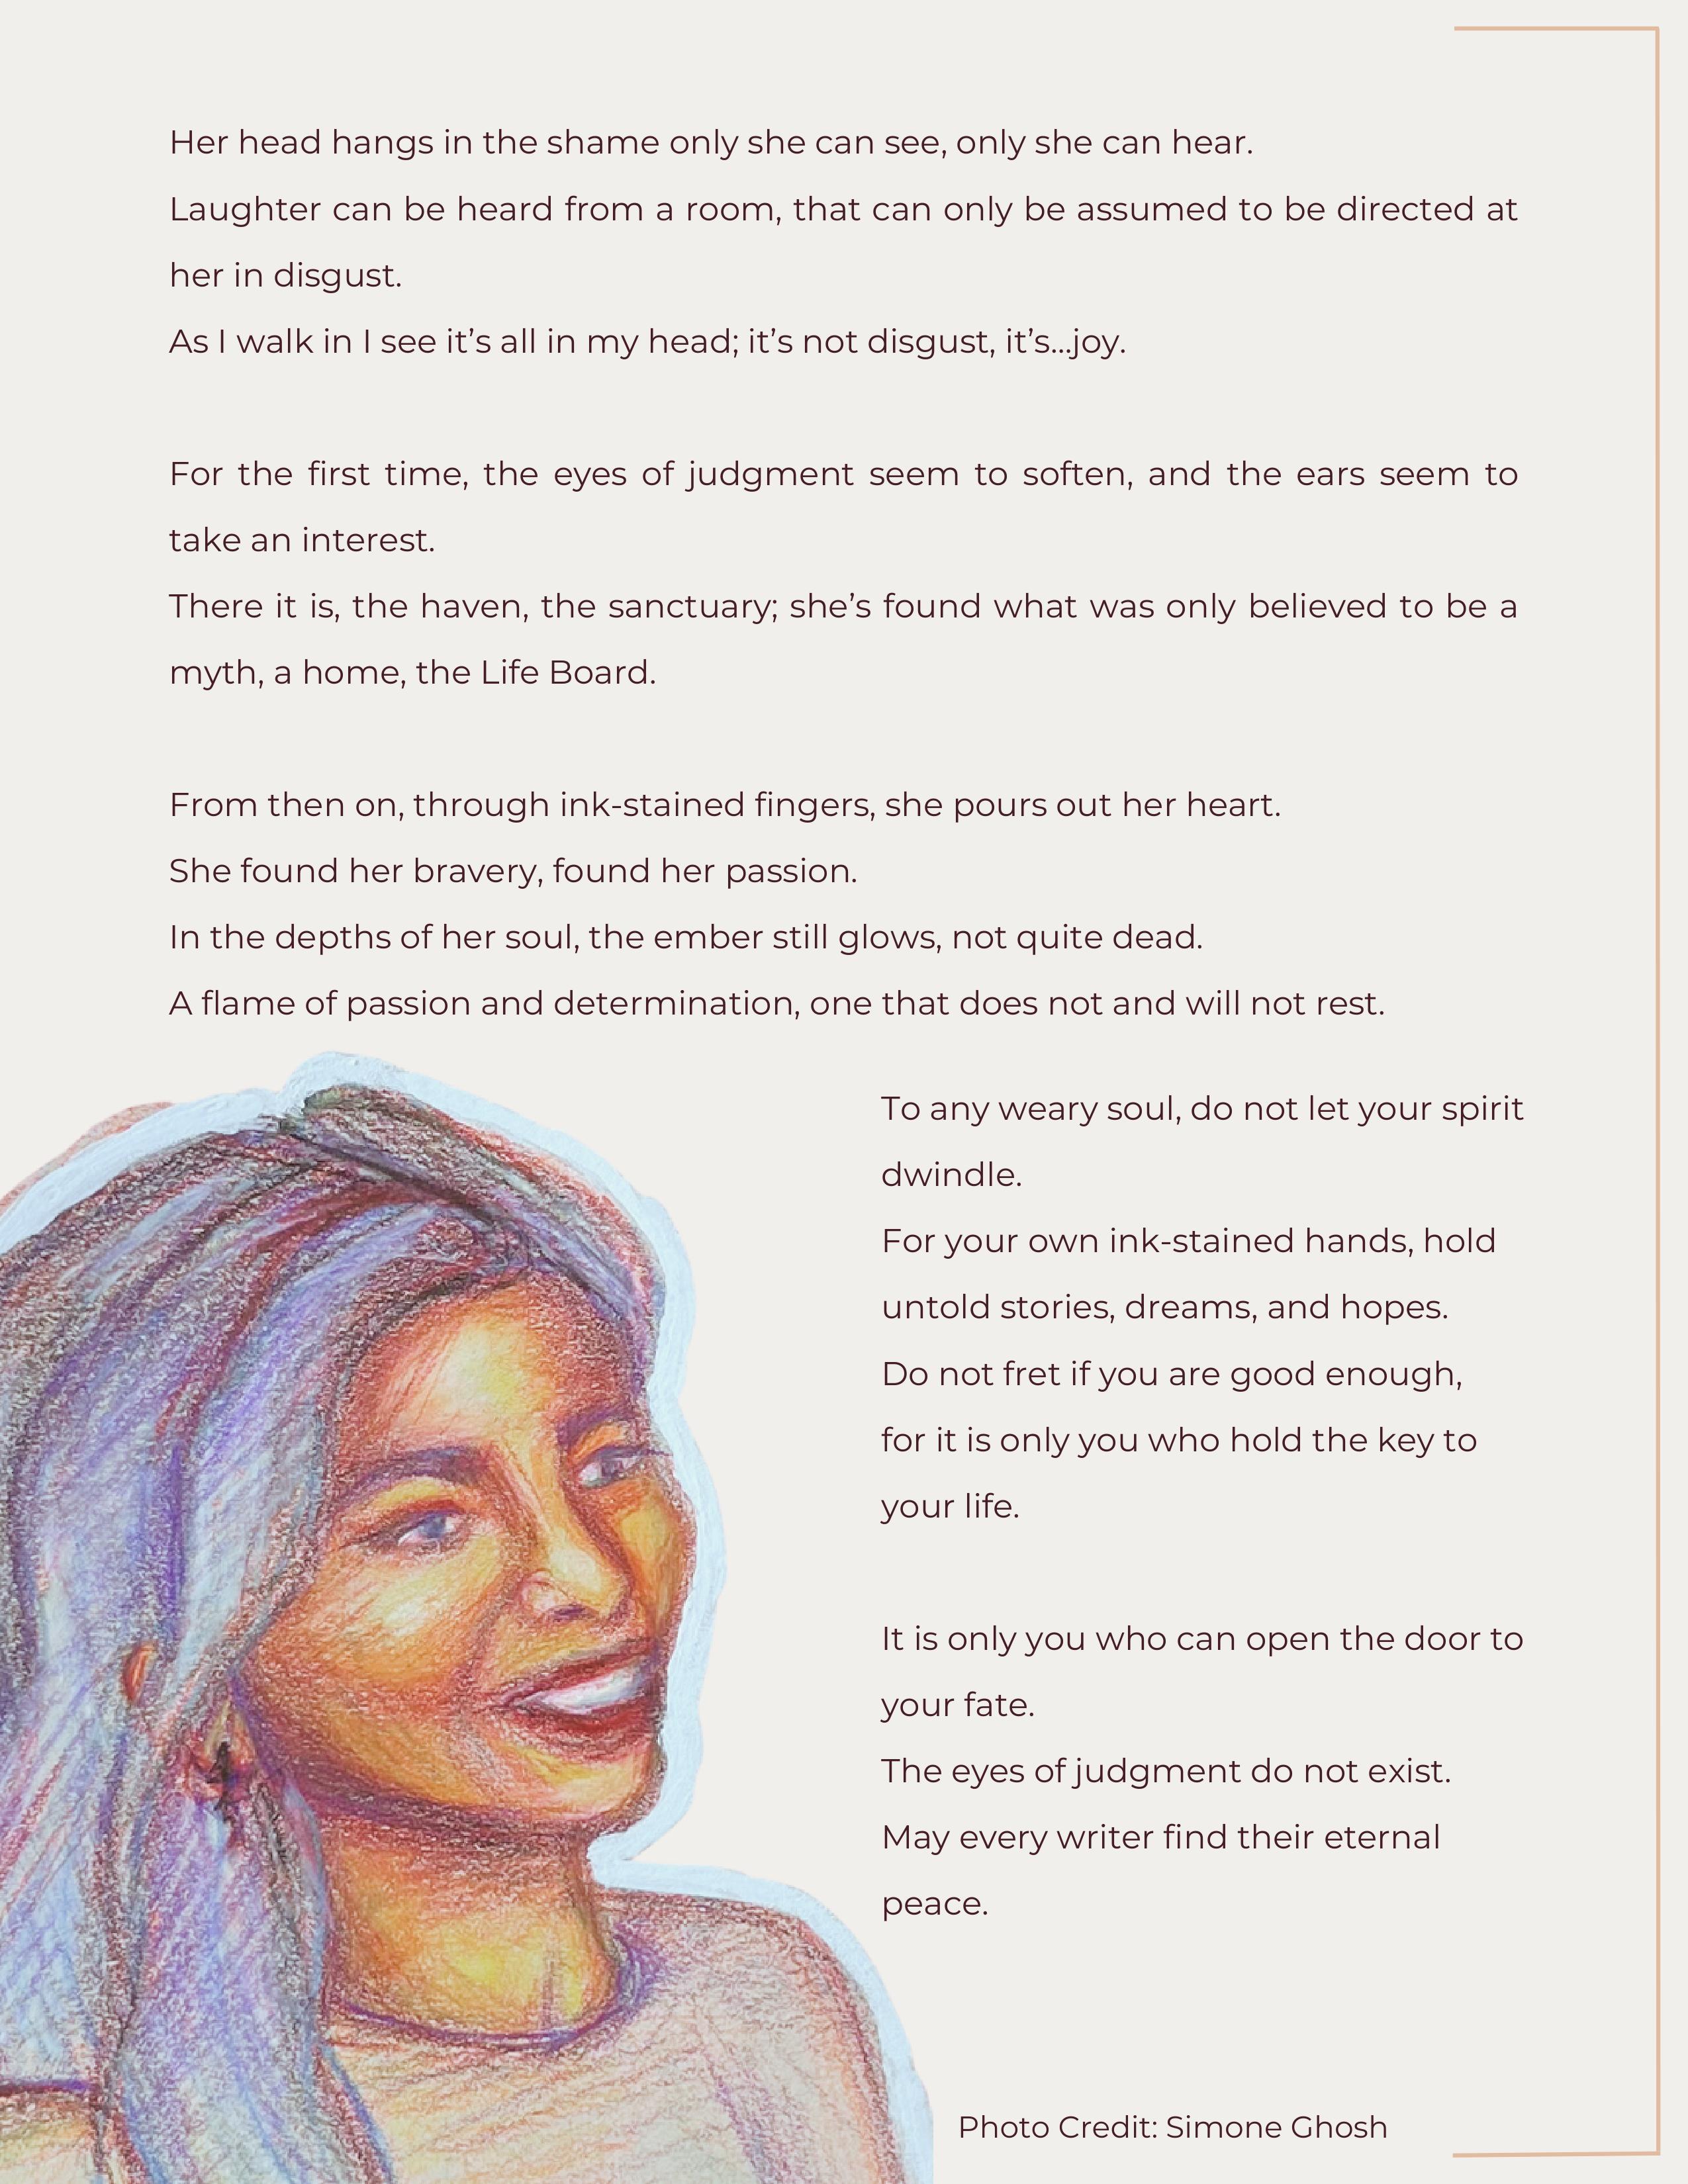 Her head hangs in the shame only she can see, only she can hear.
Laughter can be heard from a room, that can only be assumed to be directed at
her in disgust.
As I walk in I see it’s all in my head; it’s not disgust, it’s...joy.
For the first time, the eyes of judgment seem to soften, and the ears seem to
take an interest.
There it is, the haven, the sanctuary; she’s found what was only believed to be a
myth, a home, the Life Board.
From then on, through ink-stained fingers, she pours out her heart.
She found her bravery, found her passion.
In the depths of her soul, the ember still glows, not quite dead.
A flame of passion and determination, one that does not and will not rest.
To any weary soul, do not let your spirit
dwindle.
For your own ink-stained hands, hold
untold stories, dreams, and hopes.
Do not fret if you are good enough,
for it is only you who hold the key to
your life.
It is only you who can open the door to
your fate.
The eyes of judgment do not exist.
May every writer find their eternal
peace.
Photo Credit: Simone Ghosh